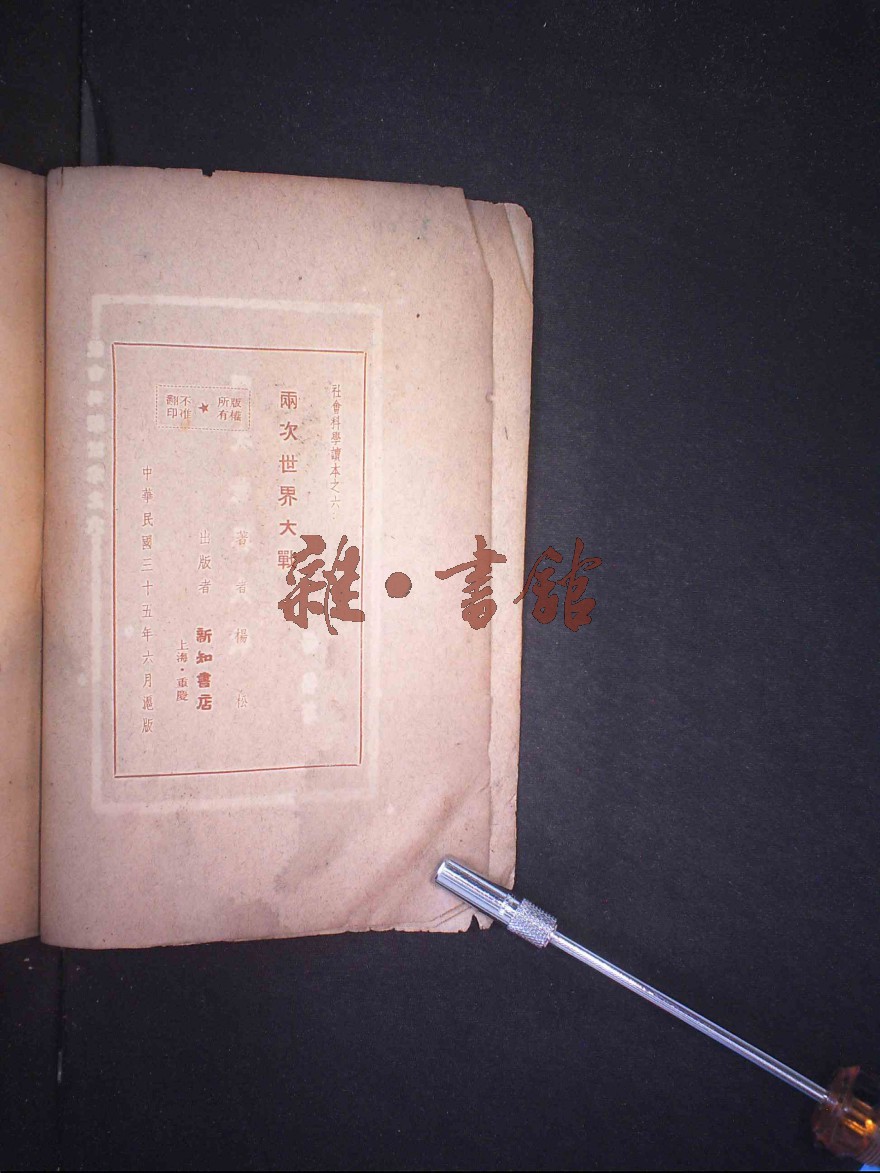 社會科學讀本之六：
兩次世界大戰
著者 楊松
出版者 新知書店
上海·重慶
版權所有★不准翻印
中華民國三十五年六月滬版
雜·書館